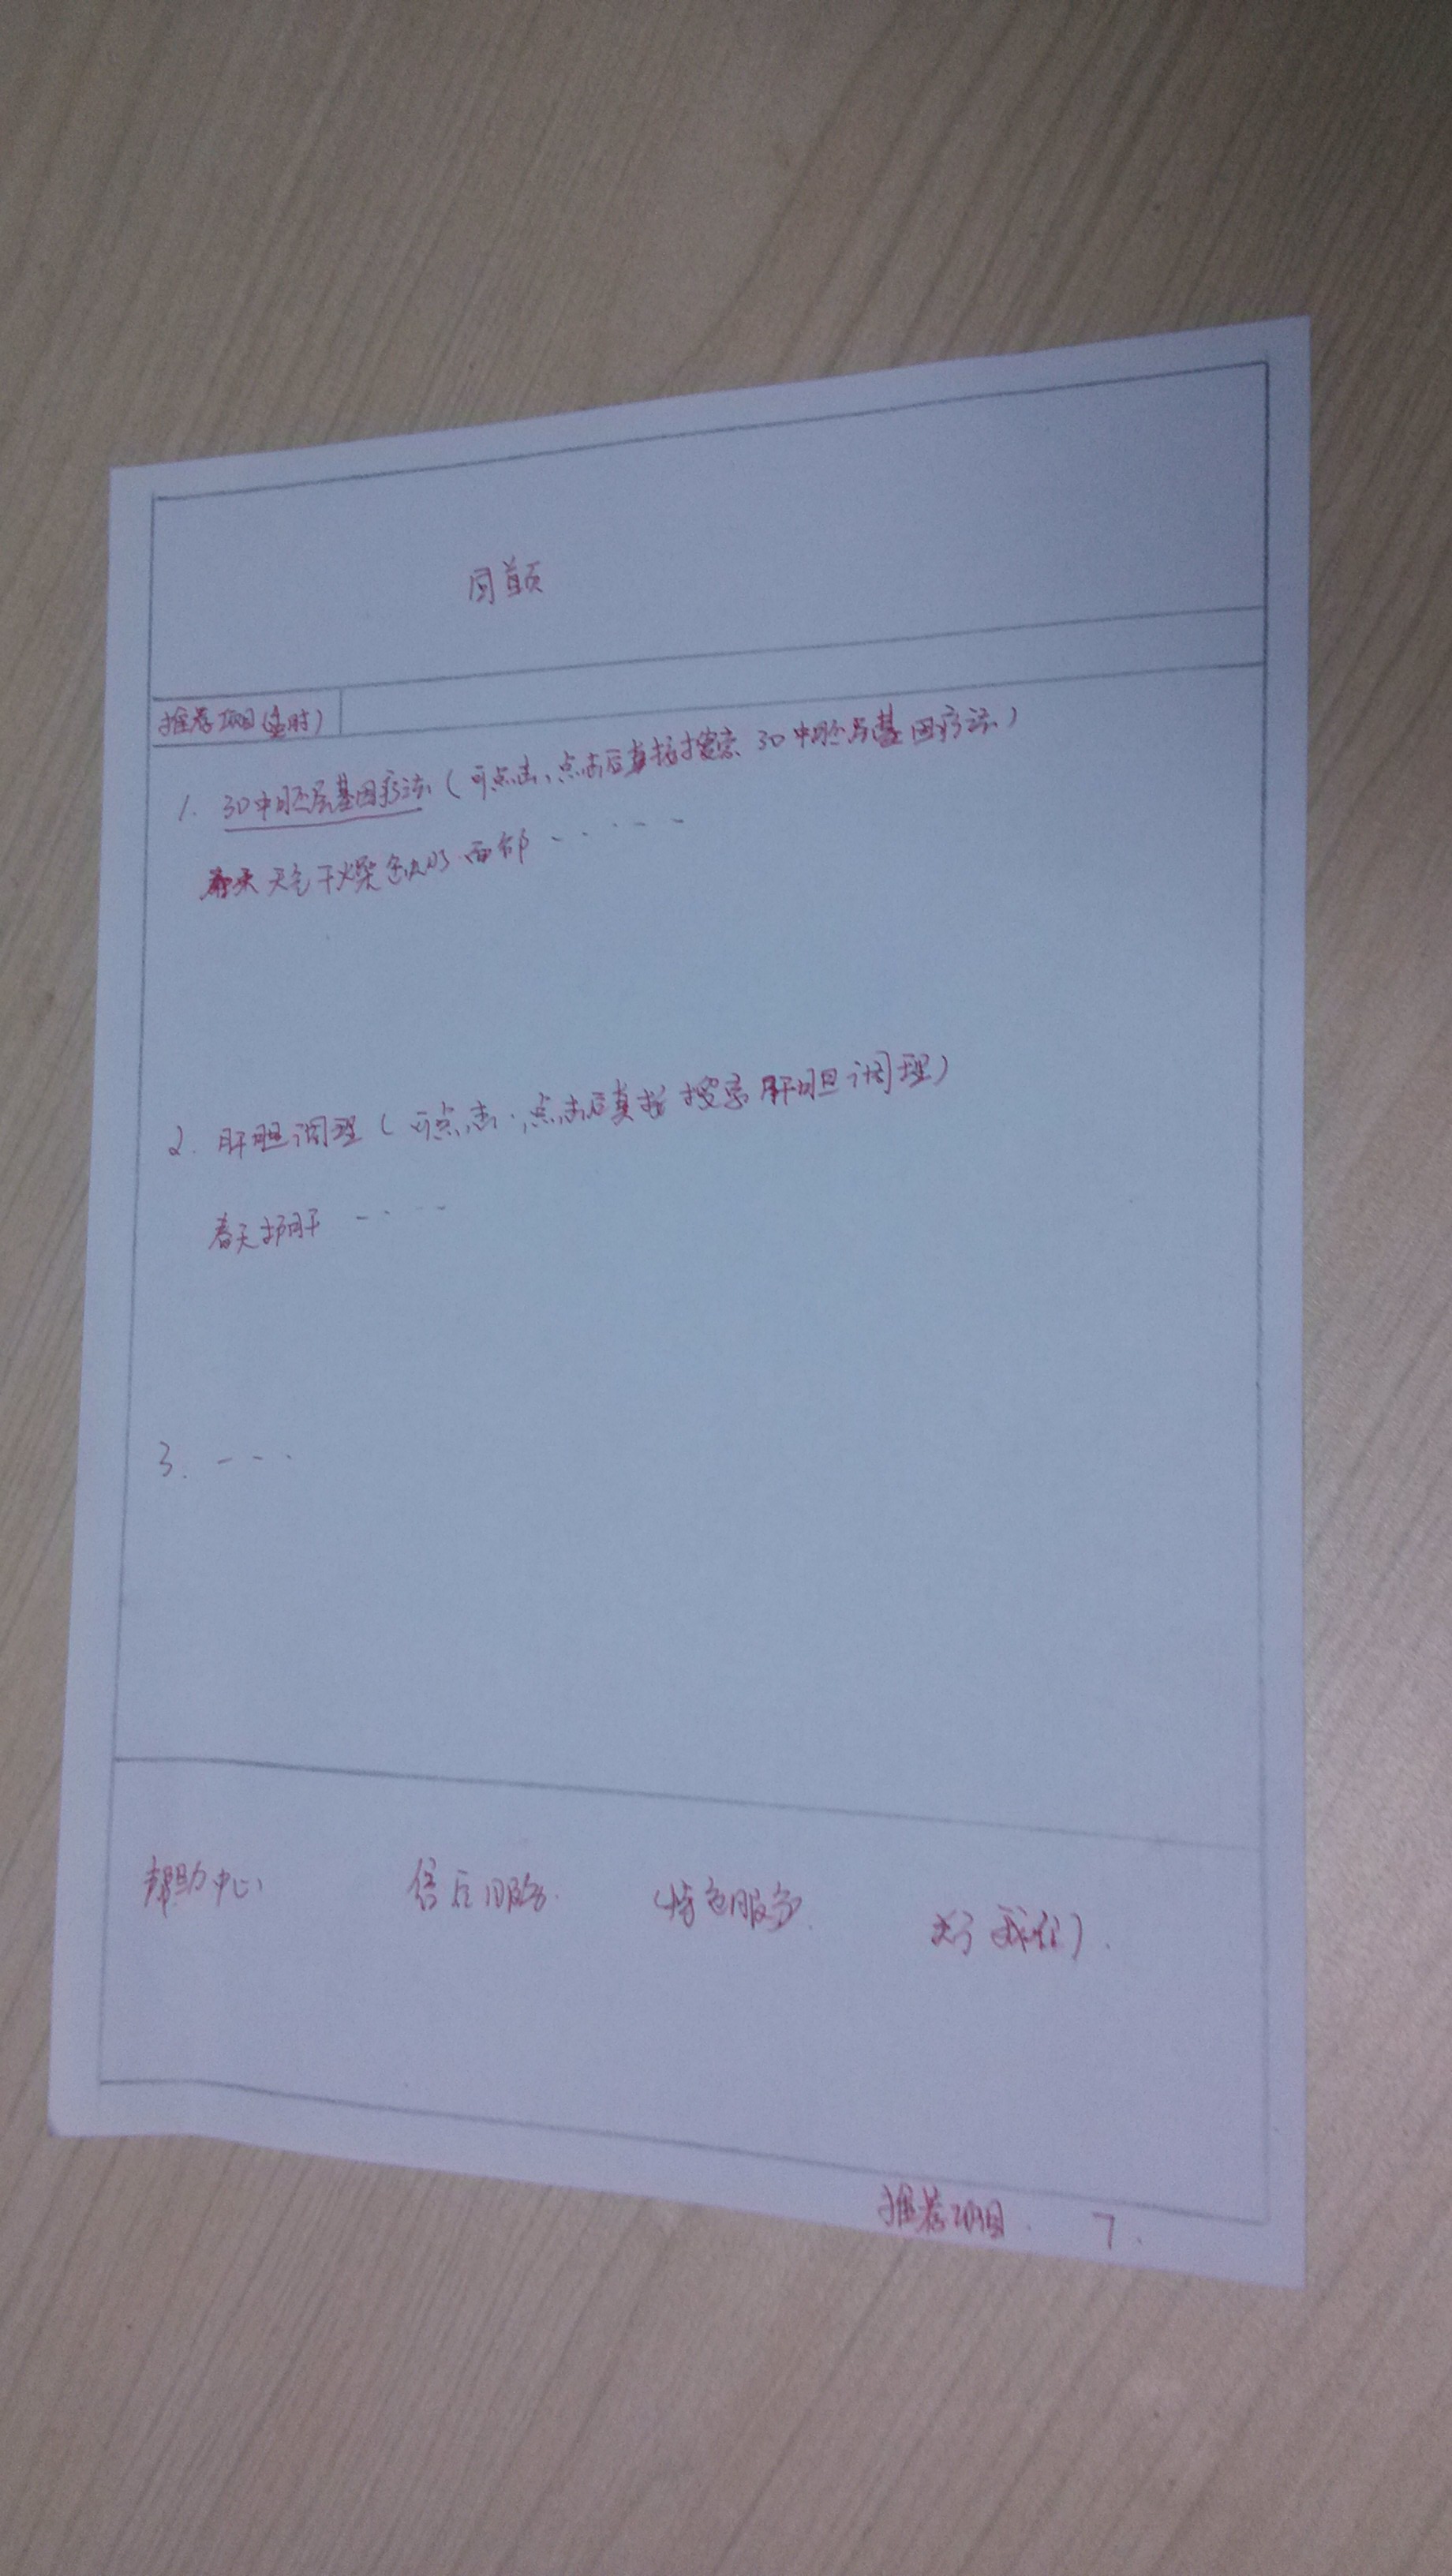 同首页
推荐项目(当时)
1. 3D中胚层基因疗法 (可点击,点击后直接搜索 3D中胚层基因疗法)
春天 天气干燥 面部 ······
2. 肝胆调理 (可点击,点击后直接搜索肝胆调理)
春天护肝 ····
3. ----
帮助中心 售后服务 特色服务 关于我们
推荐项目 7.